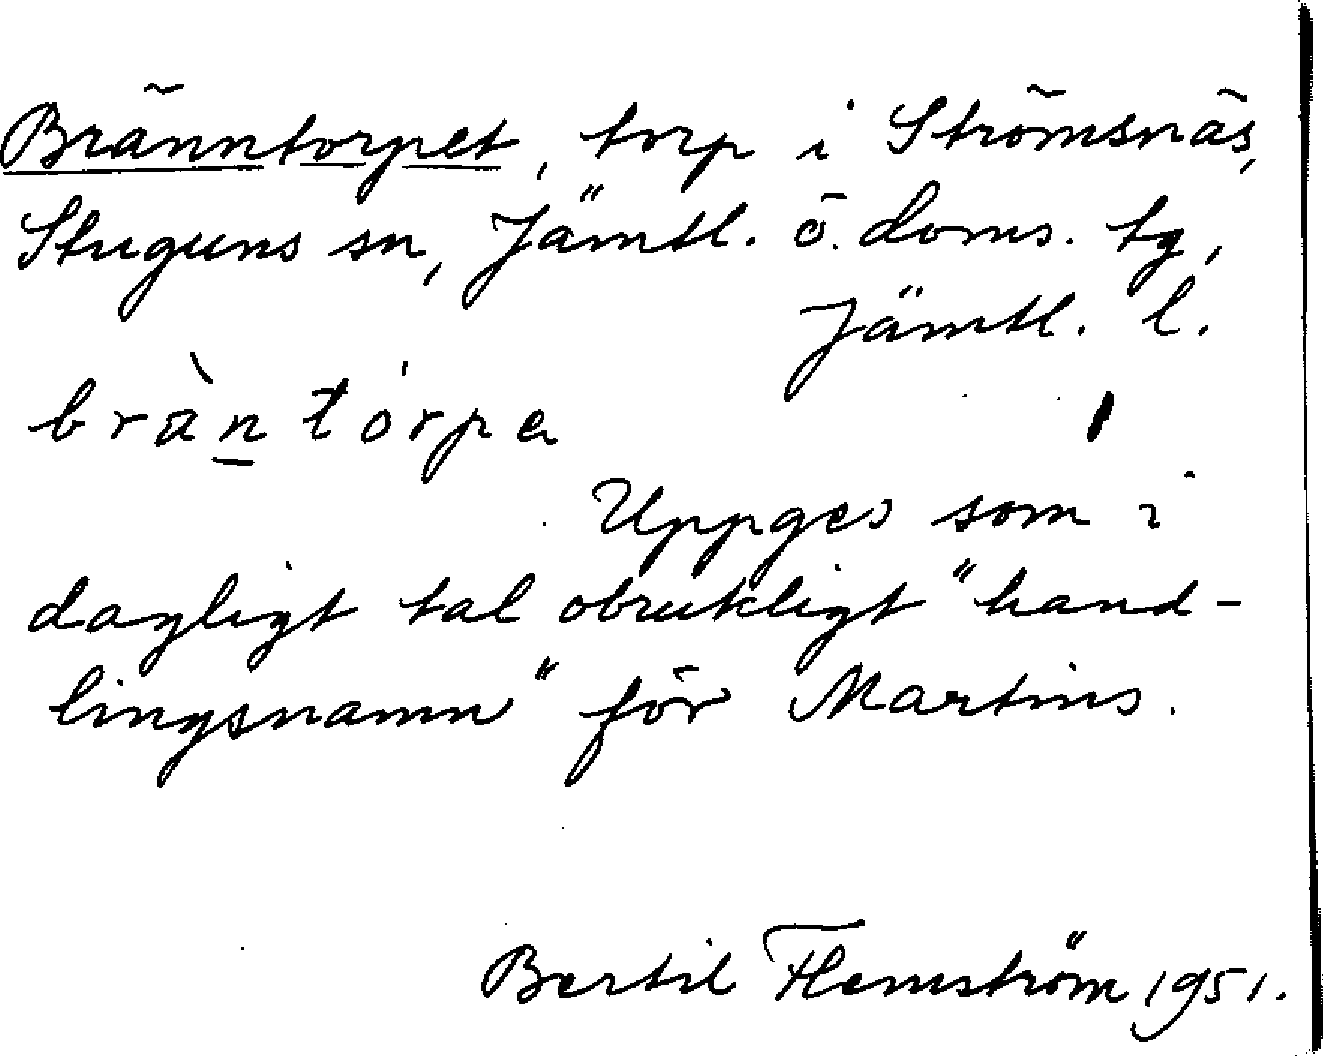 Bränntorpet, torp i Strömsnäs,
Stuguns sn, Jämtl. ö. doms. tg,
Jämtl. l.
bràn̲tórpa
Uppges som i
dagligt tal obrukligt "hand-
lingsnamn" för Martins.
Bertil Flemström 1951.